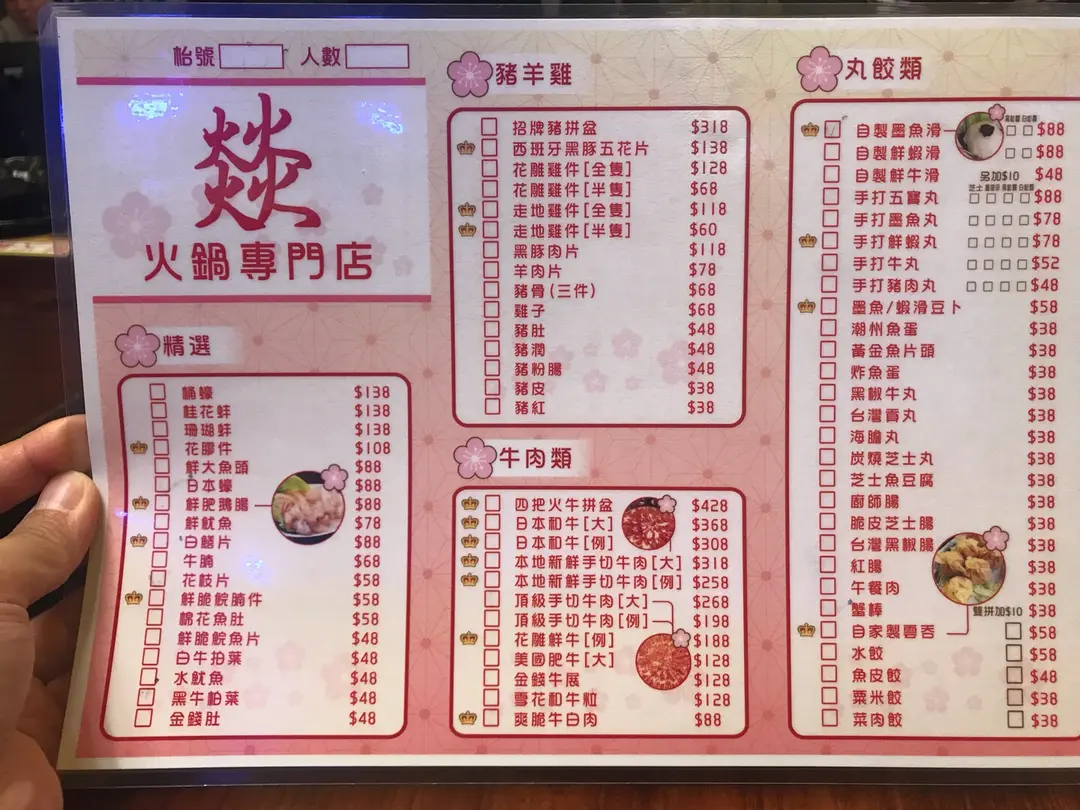 枱號 人數
燚
火鍋專門店
精選
桶蠔 $138
桂花蚌 $138
珊瑚蚌 $138
花膠件 $108
鮮大魚頭 $88
日本蠔 $88
鮮肥鵝腸 $88
鮮魷魚 $78
白鱔片 $88
牛腩 $68
花枝片 $58
鮮脆鯇腩件 $58
棉花魚肚 $58
鮮脆鯇魚片 $48
白牛柏葉 $48
水魷魚 $48
黑牛柏葉 $48
金錢肚 $48
豬羊雞
招牌豬拼盆 $318
西班牙黑豚五花片 $138
花雕雞件[全隻] $128
花雕雞件[半隻] $68
走地雞件[全隻] $118
走地雞件[半隻] $60
黑豚肉片 $118
羊肉片 $78
豬骨(三件) $68
雞子 $68
豬肚 $48
豬潤 $48
豬粉腸 $48
豬皮 $38
豬紅 $38
牛肉類
四把火牛拼盆 $428
日本和牛[大] $368
日本和牛[例] $308
本地新鮮手切牛肉[大] $318
本地新鮮手切牛肉[例] $258
頂級手切牛肉[大] $268
頂級手切牛肉[例] $198
花雕鮮牛[例] $188
美國肥牛[大] $128
金錢牛展 $128
雪花和牛粒 $128
爽脆牛白肉 $88
丸餃類
自製墨魚滑 $88
自製鮮蝦滑 $88
自製鮮牛滑 另加$10 $48
芝士
手打五寶丸 $88
手打墨魚丸 $78
手打鮮蝦丸 $78
手打牛丸 $52
手打豬肉丸 $48
墨魚/蝦滑豆卜 $58
潮州魚蛋 $38
黃金魚片頭 $38
炸魚蛋 $38
黑椒牛丸 $38
台灣貢丸 $38
海膽丸 $38
炭燒芝士丸 $38
芝士魚豆腐 $38
廚師腸 $38
脆皮芝士腸 $38
台灣黑椒腸 $38
紅腸 $38
午餐肉 $38
蟹棒 雙拼加$10 $38
自家製雲吞 $58
水餃 $58
魚皮餃 $48
粟米餃 $38
菜肉餃 $38